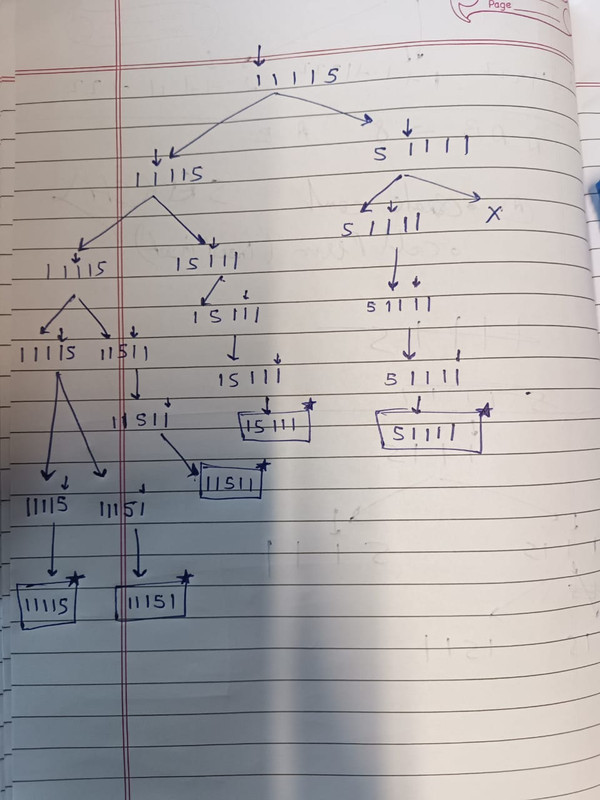 Page
11115
5 1111
11115
5 1111
X
11115
15111
51111
15111
11115 11511
15111
51111
11511
15111
51111
11511
11115 11151
11115
11151